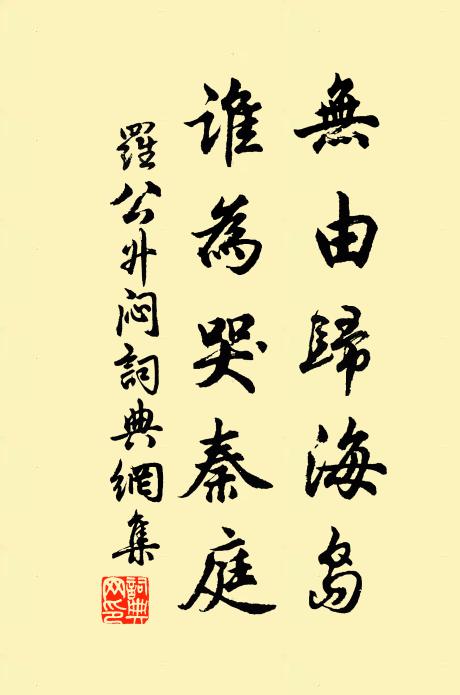 無由歸海島
誰為哭秦庭
羅公升悶詞典網集
詞典
网印